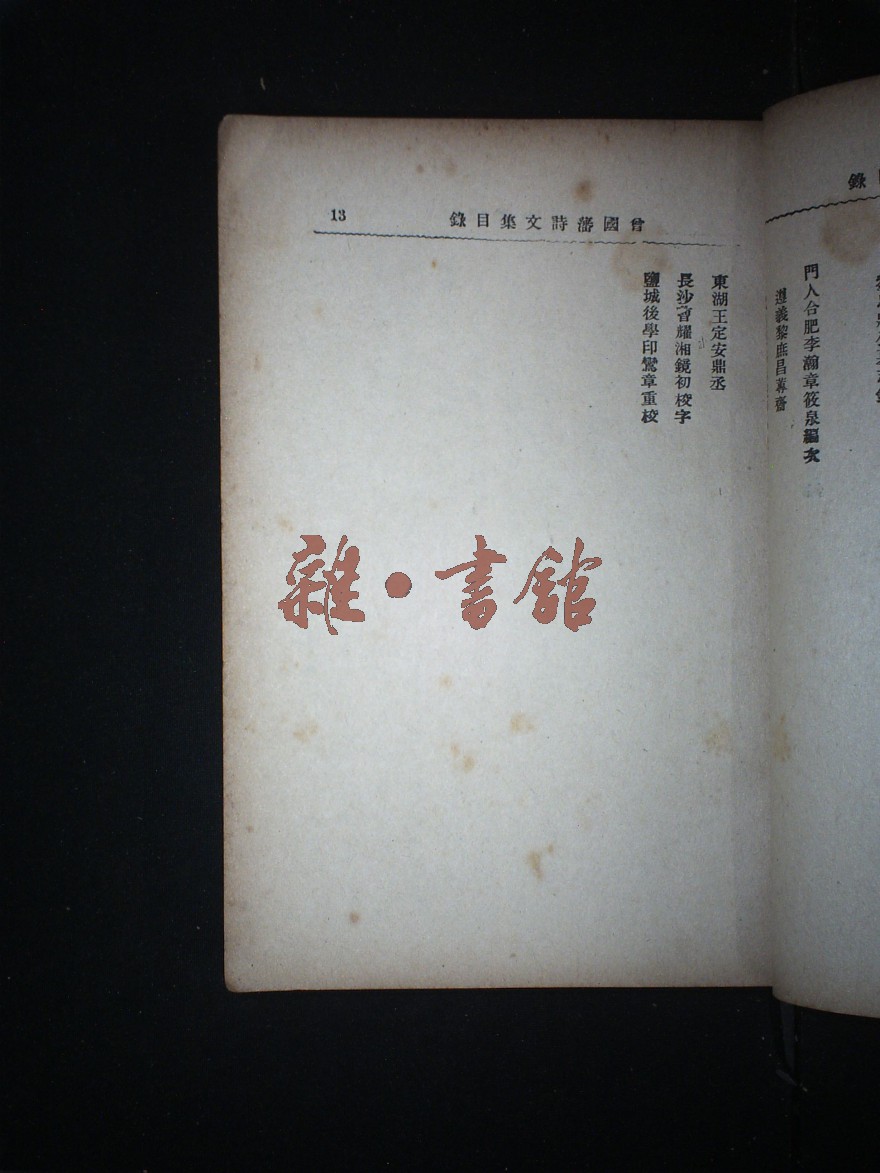 錄
門人合肥李瀚章筱泉編次
遵義黎庶昌蓴齋
13 曾國藩詩文集目錄
東湖王定安鼎丞
長沙曾耀湘鏡初校字
鹽城後學印鸞章重校
雜·書館